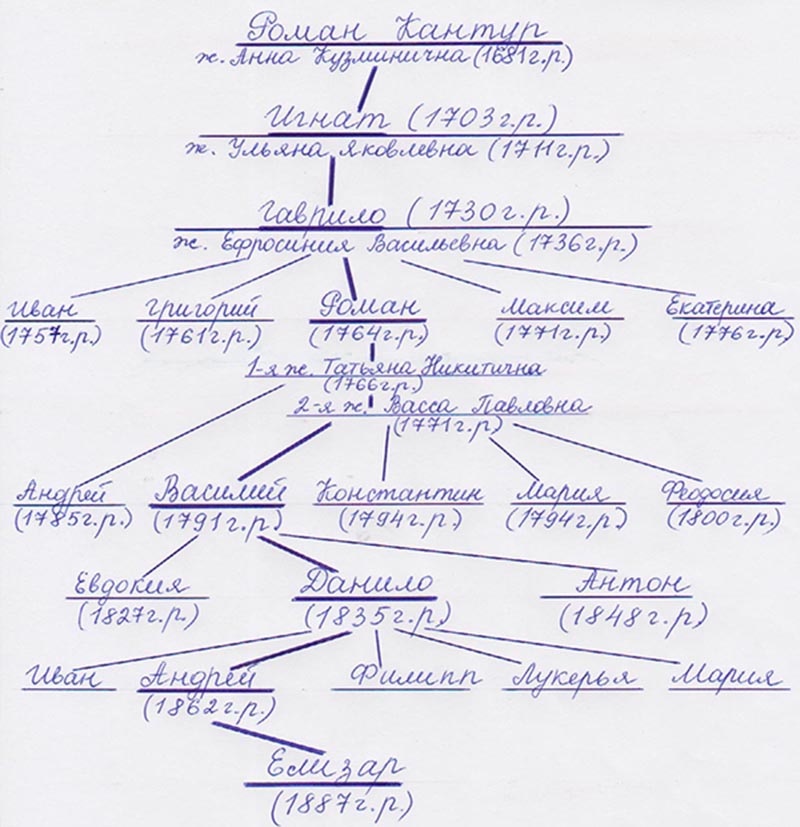 Роман Кантур
ж. Анна Кузминична (1681г.р.)
Игнат (1703г.р.)
ж. Ульяна Яковлевна (1711г.р.)
Гаврило (1730г.р.)
ж. Ефросиния Васильевна (1736г.р.)
Иван Григорий Роман Максим Екатерина
(1757г.р.) (1761г.р.) (1764г.р.) (1771г.р.) (1776г.р.)
1-я ж. Татьяна Никитична
(1766г.р.)
2-я ж. Васса Павловна
(1771г.р.)
Андрей Василий Константин Мария Феодосия
(1785г.р.) (1791г.р.) (1794г.р.) (1794г.р.) (1800г.р.)
Евдокия Данило Антон
(1827г.р.) (1835г.р.) (1848г.р.)
Иван Андрей Филипп Лукерья Мария
(1862г.р.)
Елизар
(1887г.р.)